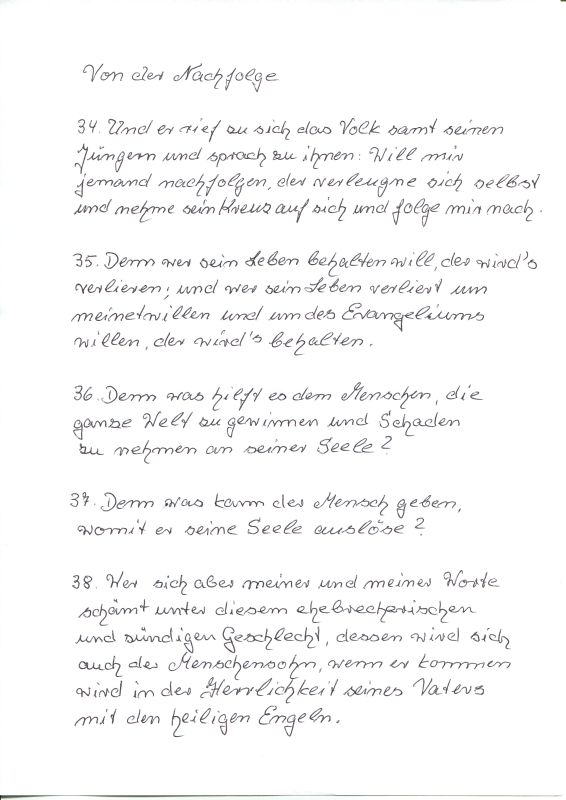 Von der Nachfolge
34. Und er rief zu sich das Volk samt seinen
Jüngern und sprach zu ihnen: Will mir
jemand nachfolgen, der verleugne sich selbst
und nehme sein Kreuz auf sich und folge mir nach.
35. Denn wer sein Leben behalten will, der wird's
verlieren; und wer sein Leben verliert um
meinetwillen und um des Evangeliums
willen, der wird's behalten.
36. Denn was hilft es dem Menschen, die
ganze Welt zu gewinnen und Schaden
zu nehmen an seiner Seele?
37. Denn was kann der Mensch geben,
womit er seine Seele auslöse?
38. Wer sich aber meiner und meiner Worte
schämt unter diesem ehebrecherischen
und sündigen Geschlecht, dessen wird sich
auch der Menschensohn, wenn er kommen
wird in der Herrlichkeit seines Vaters
mit den heiligen Engeln.